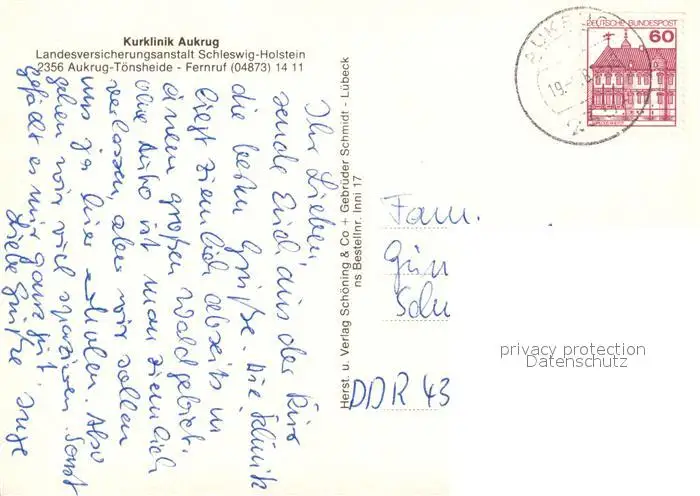 Kurklinik Aukrug
Landesversicherungsanstalt Schleswig-Holstein
2356 Aukrug-Tönsheide - Fernruf (04873) 14 11
Ihr Lieben
sende Euch aus der Kur
die besten Grüße. Die Klinik
liegt ziemlich abseits in
einem großen Waldgebiet.
ohne Auto ist man ziemlich
verlassen, aber wir sollen
uns ja hier erholen. Also
gehen wir viel spazieren. Sonst
gefällt es mir ganz gut.
Liebe Grüße Inge
Herst. u. Verlag Schöning & Co + Gebrüder Schmidt - Lübeck
ns Bestellnr. Inni 17
DEUTSCHE BUNDESPOST
60
AUKRUG
19.
Fam.
Gün
Schu
DDR 43
privacy protection
Datenschutz